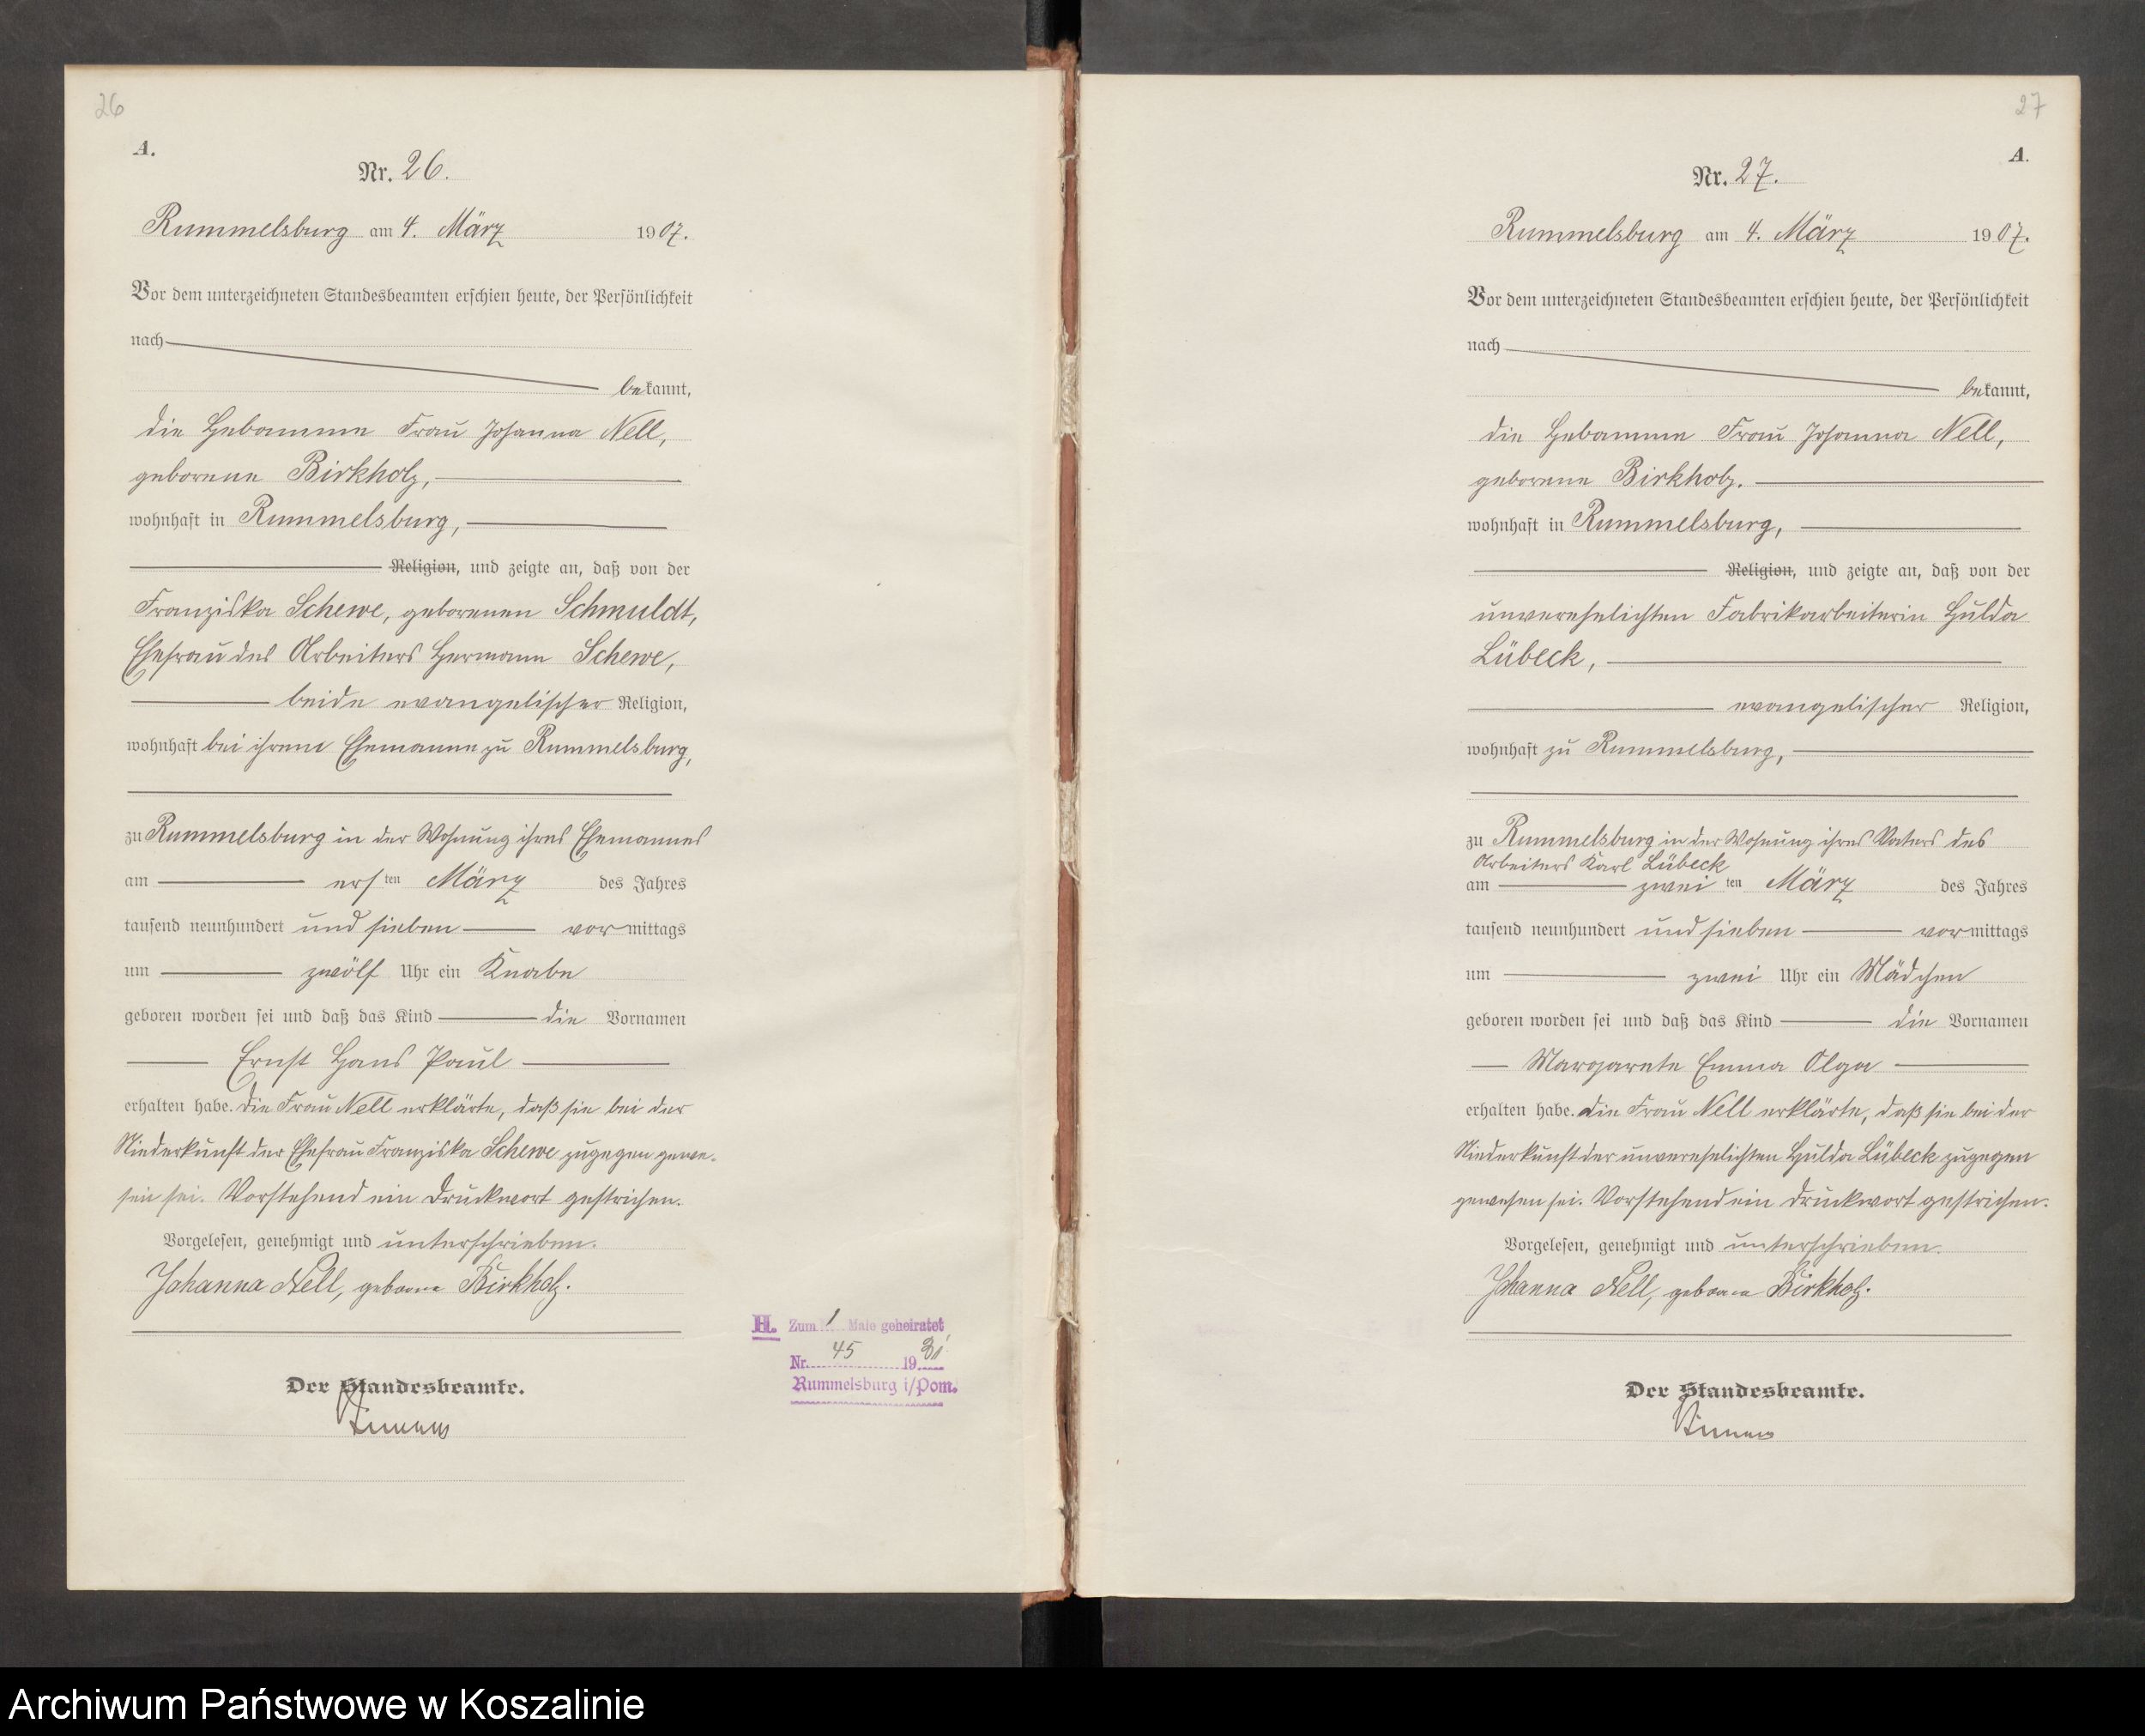 26
A.
Nr. 26.
Rummelsburg am 4. März 1907.
Vor dem unterzeichneten Standesbeamten erschien heute, der Persönlichkeit
nach
bekannt,
die Hebamme Frau Johanna Nell,
geborene Birkholz,
wohnhaft in Rummelsburg,
Religion, und zeigte an, daß von der
Franziska Schewe, geborenen Schmuldt,
Ehefrau des Arbeiters Hermann Schewe,
beide evangelischer Religion,
wohnhaft bei ihrem Ehemanne zu Rummelsburg,
zu Rummelsburg in der Wohnung ihres Ehemannes
am ersten März des Jahres
tausend neunhundert und sieben vormittags
um zwölf Uhr ein Knabe
geboren worden sei und daß das Kind die Vornamen
Ernst Hans Paul
erhalten habe. Die Frau Nell erklärte, daß sie bei der
Niederkunft der Ehefrau Franziska Schewe zugegen gewe-
sen sei. Vorstehend ein Druckwort gestrichen.
Vorgelesen, genehmigt und unterschrieben.
Johanna Nell, geborne Birkholz.
Der Standesbeamte.
H. Zum 1 Male geheiratet
Nr. 45 1931
Rummelsburg i/Pom.
27
A.
Nr. 27.
Rummelsburg am 4. März 1907.
Vor dem unterzeichneten Standesbeamten erschien heute, der Persönlichkeit
nach
bekannt,
die Hebamme Frau Johanna Nell,
geborene Birkholz.
wohnhaft in Rummelsburg,
Religion, und zeigte an, daß von der
unverehelichten Fabrikarbeiterin Hulda
Lübeck,
evangelischer Religion,
wohnhaft zu Rummelsburg,
zu Rummelsburg in der Wohnung ihres Vaters des
Arbeiters Karl Lübeck
am zweiten März des Jahres
tausend neunhundert und sieben vormittags
um zwei Uhr ein Mädchen
geboren worden sei und daß das Kind die Vornamen
Margarete Emma Olga
erhalten habe. Die Frau Nell erklärte, daß sie bei der
Niederkunft der unverehelichten Hulda Lübeck zugegen
gewesen sei. Vorstehend ein Druckwort gestrichen.
Vorgelesen, genehmigt und unterschrieben.
Johanna Nell, geborne Birkholz.
Der Standesbeamte.
Archiwum Państwowe w Koszalinie